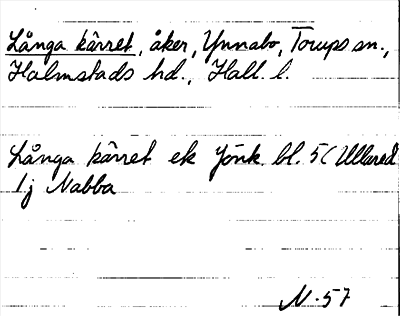 Långa kärret, åker, Ynnabo, Torups sn.,
Halmstads hd., Hall. l.
Långa kärret ek Jönk. bl. 5 (Ullared
1j Nabba
N-57